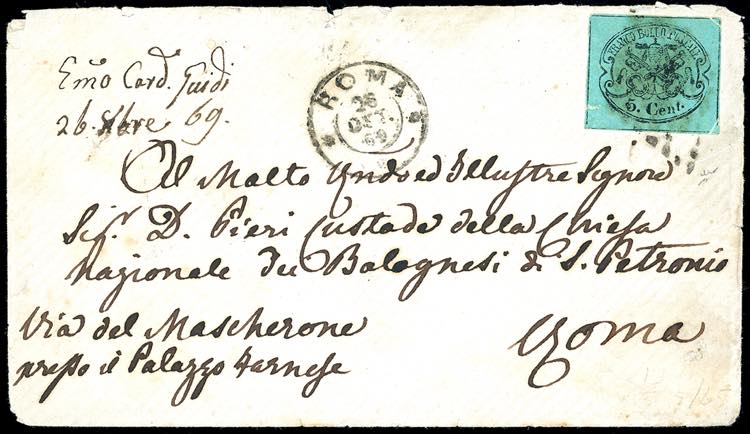 Emo Card. Guidi
26. Xbre 69.
ROMA
26
OTT.
69
FRANCO BOLLO POSTALE
5. Cent.
Al Molto Revdo ed Illustre Signore
Sigr. D. Pieri Custode della Chiesa
Nazionale dei Bolognesi di S. Petronio
Via del Mascherone
presso il Palazzo Farnese
Roma